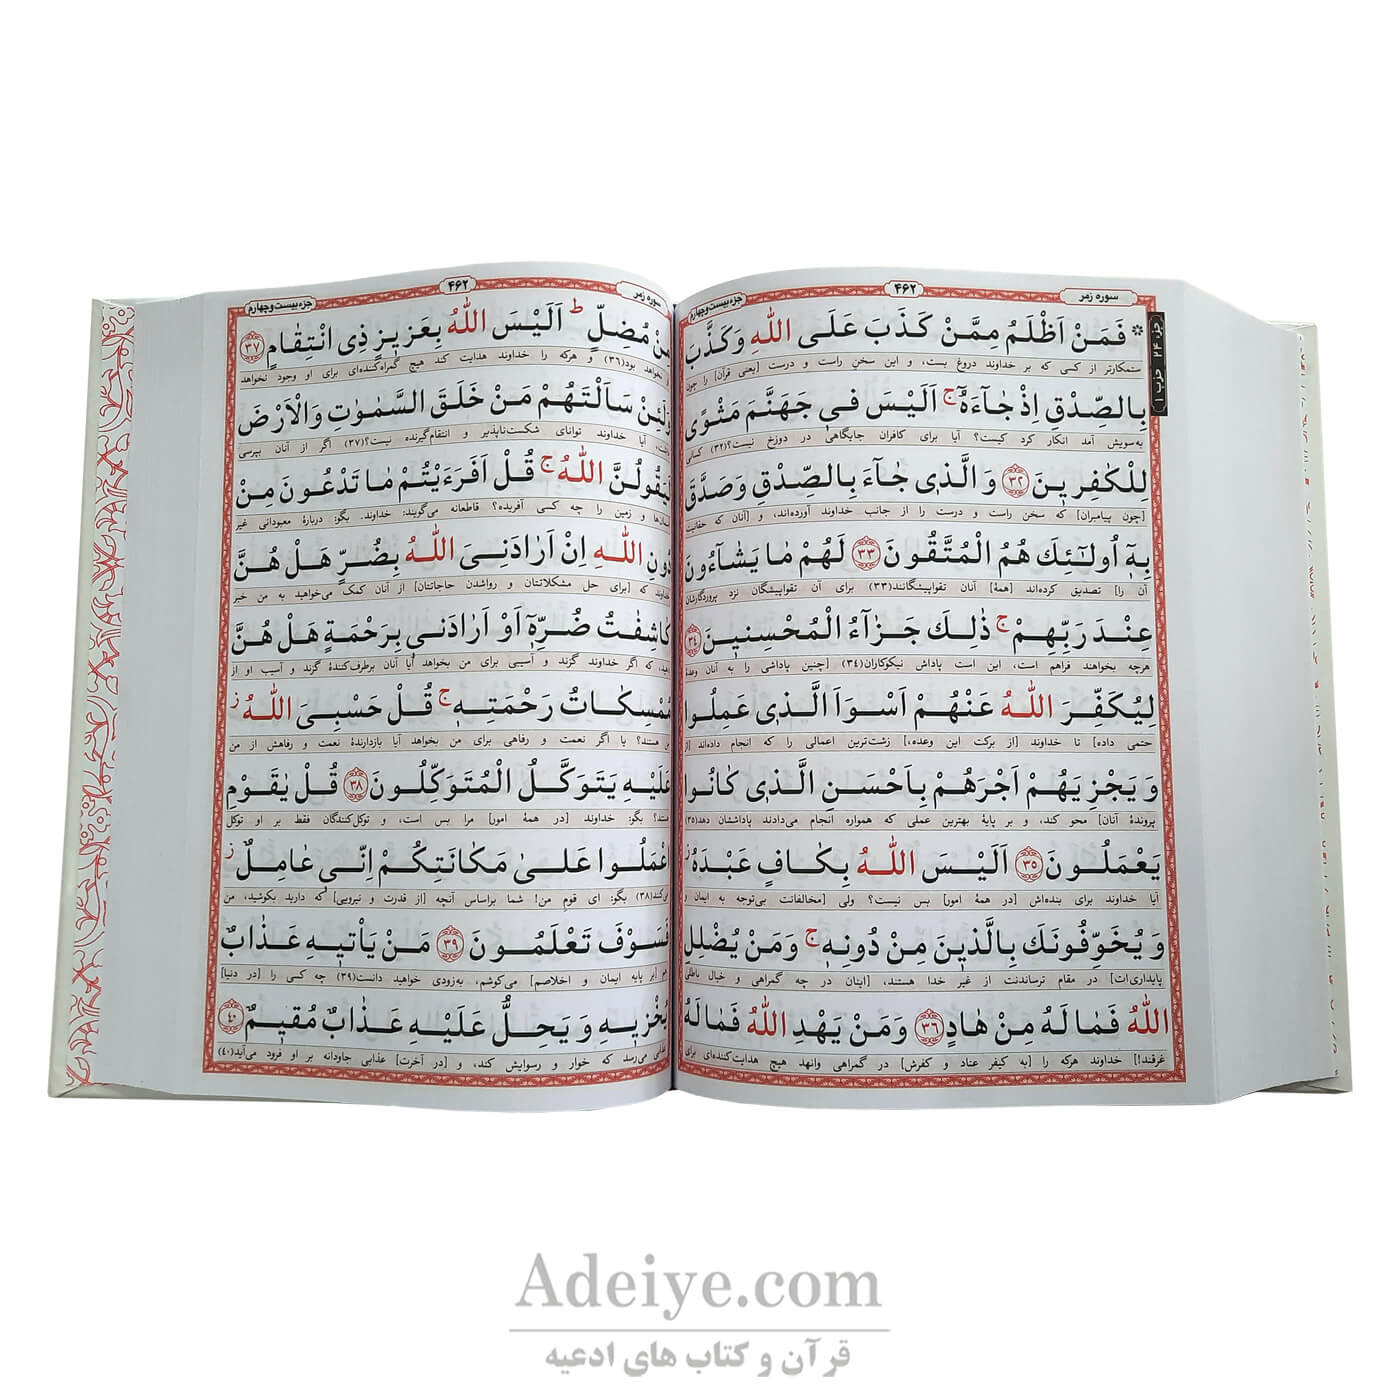 سوره زمر
۴۶۲
جزء بیست و چهارم
جزء ۲۴ حزب ۱
* فَمَنْ اَظْلَمُ مِمَّنْ كَذَبَ عَلَى اللّٰهِ وَكَذَّبَ
ستمکارتر از کسی که بر خداوند دروغ بست، و این سخنِ راست و درست [یعنی قرآن] را چون
بِالصِّدْقِ اِذْ جٰٓاءَهُٓ ج اَلَيْسَ فٖى جَهَنَّمَ مَثْوًى
به‌سویش آمد انکار کرد کیست؟ آیا برای کافران جایگاهی در دوزخ نیست؟(۳۲) کسانی
لِلْكٰفِرٖينَ ۳۲ وَ الَّذٖى جٰٓاءَ بِالصِّدْقِ وَصَدَّقَ
[چون پیامبران] که سخن راست و درست را از جانب خداوند آورده‌اند، و [آنان که حقانیت
بِهٖٓ اُولٰٓئِكَ هُمُ الْمُتَّقُونَ ۳۳ لَهُمْ مٰا يَشٰٓاءُونَ
آن را] تصدیق کرده‌اند [همهٔ] آنان تقواپیشگانند(۳۳) برای آن تقواپیشگان نزد پروردگارشان
عِنْدَ رَبِّهِمْ ج ذٰلِكَ جَزٰٓاءُ الْمُحْسِنٖينَ ۳۴
هرچه بخواهند فراهم است، این است پاداش نیکوکاران(۳۴) [چنین پاداشی را به آنان وعدهٔ
لِيُكَفِّرَ اللّٰهُ عَنْهُمْ اَسْوَاَ الَّذٖى عَمِلُوا
حتمی داده] تا خداوند [از برکت این وعده،] زشت‌ترین اعمالی را که انجام داده‌اند [از
وَ يَجْزِيَهُمْ اَجْرَهُمْ بِاَحْسَنِ الَّذٖى كٰانُوا
پروندهٔ آنان] محو کند، و بر پایهٔ بهترین عملی که همواره انجام می‌دادند پاداششان دهد(۳۵)
يَعْمَلُونَ ۳۵ اَلَيْسَ اللّٰهُ بِكٰافٍ عَبْدَهُ ز
آیا خداوند برای بنده‌اش [در همهٔ امور] بس نیست؟ ولی [مخالفانت بی‌توجه به ایمان و
وَ يُخَوِّفُونَكَ بِالَّذٖينَ مِنْ دُونِهٖ ج وَمَنْ يُضْلِلِ
پایداری‌ات] در مقام ترساندنت از غیر خدا هستند، [اینان در چه گمراهی و خیال باطلی
اللّٰهُ فَمٰا لَهُ مِنْ هٰادٍ ۳۶ وَمَنْ يَهْدِ اللّٰهُ فَمٰا لَهُ
غرقند!] خداوند هرکه را [به کیفر عناد و کفرش] در گمراهی وانهد هیچ هدایت‌کننده‌ای برای
سوره زمر
۴۶۲
جزء بیست و چهارم
مِنْ مُضِلٍّ ط اَلَيْسَ اللّٰهُ بِعَزٖيزٍ ذِى انْتِقٰامٍ ۳۷
نخواهد بود(۳۶) و هرکه را خداوند هدایت کند هیچ گمراه‌کننده‌ای برای او وجود نخواهد
وَلَئِنْ سَاَلْتَهُمْ مَنْ خَلَقَ السَّمٰوٰتِ وَالْاَرْضَ
آیا خداوند توانای شکست‌ناپذیر و انتقام‌گیرنده نیست؟(۳۷) اگر از آنان بپرسی
لَيَقُولُنَّ اللّٰهُ ج قُلْ اَفَرَءَيْتُمْ مٰا تَدْعُونَ مِنْ
و زمین را چه کسی آفریده؟ قاطعانه می‌گویند: خداوند. بگو: دربارهٔ معبودانی غیر
دُونِ اللّٰهِ اِنْ اَرٰادَنِىَ اللّٰهُ بِضُرٍّ هَلْ هُنَّ
خداوند که [برای حل مشکلاتتان و رواشدن حاجاتتان] از آنان کمک می‌خواهید به من خبر
كٰاشِفٰتُ ضُرِّهٖٓ اَوْ اَرٰادَنٖى بِرَحْمَةٍ هَلْ هُنَّ
دهید، که اگر خداوند گزند و آسیبی برای من بخواهد آیا آنان برطرف‌کنندهٔ گزند و آسیب او از
مُمْسِكٰاتُ رَحْمَتِهٖ ج قُلْ حَسْبِىَ اللّٰهُ ز
من هستند؟ یا اگر نعمت و رفاهی برای من بخواهد آیا بازدارندهٔ نعمت و رفاهش از من
عَلَيْهِ يَتَوَكَّلُ الْمُتَوَكِّلُونَ ۳۸ قُلْ يٰقَوْمِ
هستند؟ بگو: خداوند [در همهٔ امور] مرا بس است، و توکل‌کنندگان فقط بر او توکل
اعْمَلُوا عَلىٰ مَكٰانَتِكُمْ اِنّٖى عٰامِلٌ ز
می‌کنند(۳۸) بگو: ای قوم من! شما براساس آنچه [از قدرت و نیرویی] که دارید بکوشید، من
فَسَوْفَ تَعْلَمُونَ ۳۹ مَنْ يَاْتٖيهِ عَذٰابٌ
هم [بر پایه ایمان و اخلاصم] می‌کوشم، به‌زودی خواهید دانست(۳۹) چه کسی را [در دنیا]
يُخْزٖيهِ وَ يَحِلُّ عَلَيْهِ عَذٰابٌ مُقٖيمٌ ۴۰
عذابی می‌رسد که خوار و رسوایش کند، و [در آخرت] عذابی جاودانه بر او فرود می‌آید(۴۰)
Adeiye.com
قرآن و کتاب های ادعیه